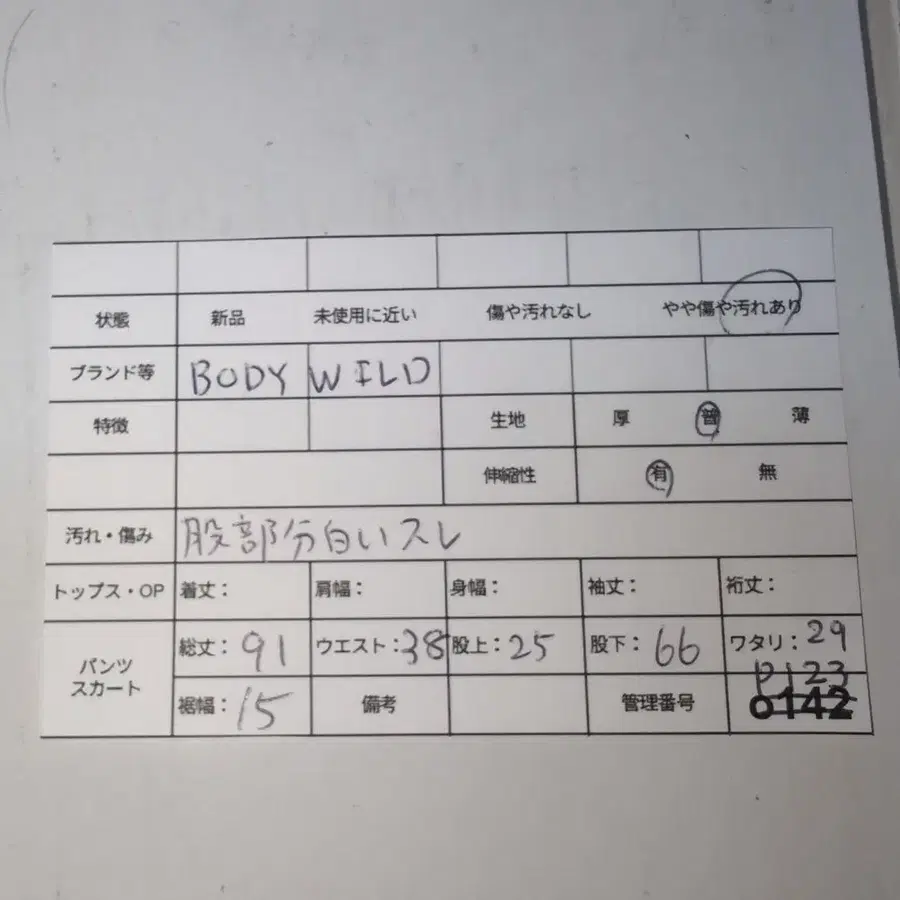 状態 新品 未使用に近い 傷や汚れなし やや傷や汚れあり
ブランド等 BODY WILD
特徴 生地 厚 普 薄
伸縮性 有 無
汚れ・傷み 股部分白いスレ
トップス・OP 着丈： 肩幅： 身幅： 袖丈： 裄丈：
パンツ スカート 総丈：91 ウエスト：38 股上：25 股下：66 ワタリ：29
裾幅：15 備考 管理番号 P123
o142